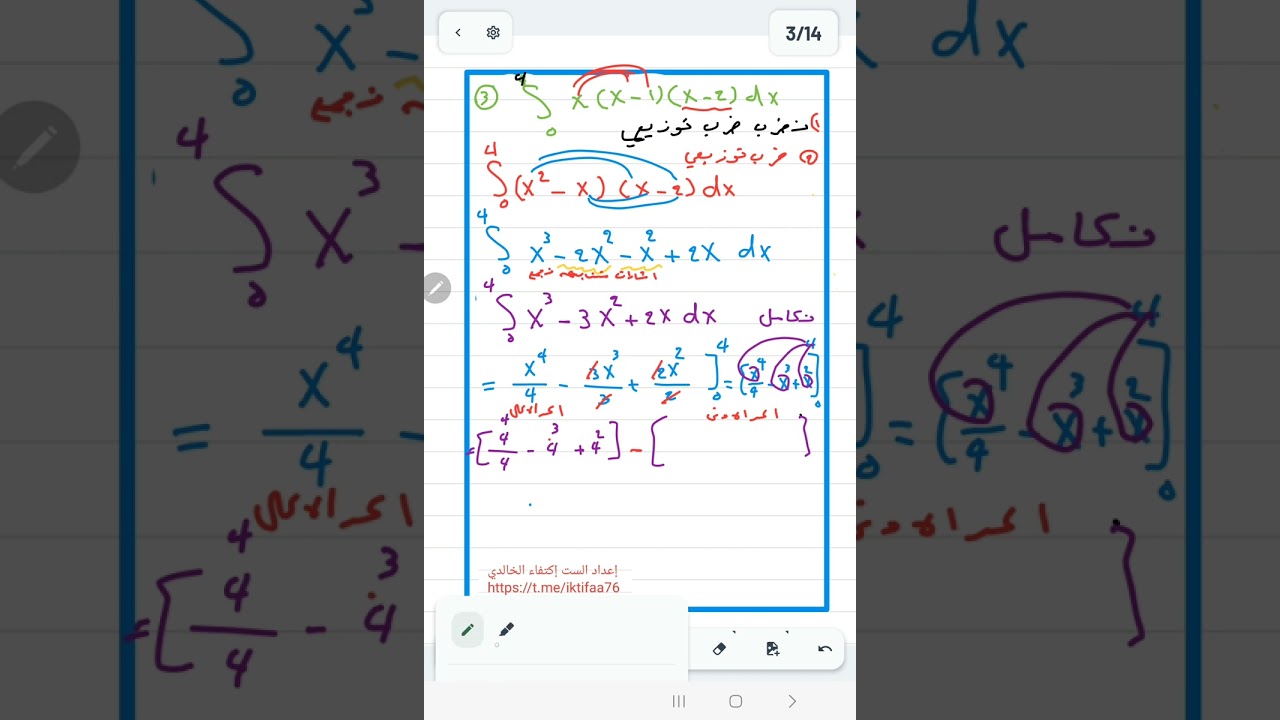 3/14
③ ∫₀⁴ x (x-1)(x-2) dx
1) نضرب ضرب توزيعي
② ضرب توزيعي
∫₀⁴ (x² - x) (x-2) dx
∫₀⁴ x³ - 2x² - x² + 2x dx
∫₀⁴ x³ - 3x² + 2x dx نكامل
= x⁴/4 - 3x³/3 + 2x²/2 ]₀⁴ = [x⁴/4 - x³ + x²]₀⁴
= [4⁴/4 - 4³ + 4²] - [ ]
إعداد الست إكتفاء الخالدي
https://t.me/iktifaa76